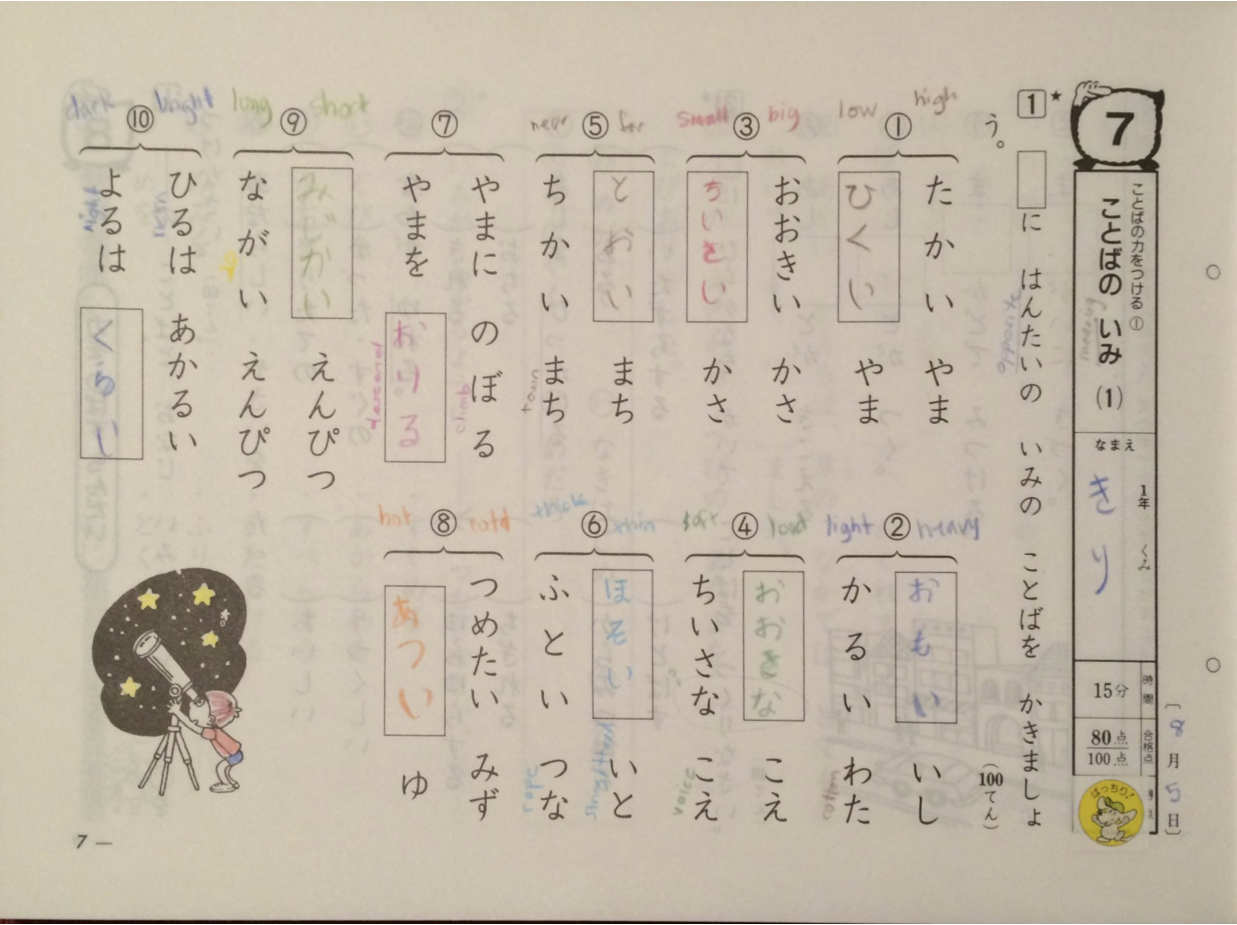 〔8月5日〕
7
ことばの力をつける①
ことばの いみ (1)
なまえ
1年 くみ
きり
時間
15分
合格点
80点
100点
ばっちり!
1
★
□に はんたいの いみの ことばを かきましょ
う。
(100てん)
opposite
meaning
high
low
①
たかい やま
ひくい やま
heavy
light
②
おもい いし
かるい わた
cotton
big
small
③
おおきい かさ
ちいさい かさ
loud
soft
④
おおきな こえ
ちいさな こえ
voice
far
near
⑤
とおい まち
ちかい まち
town
thin
thick
⑥
ほそい いと
ふとい つな
rope
⑦
やまに のぼる
climb
やまを おりる
descend
cold
hot
⑧
つめたい みず
あつい ゆ
short
long
⑨
みじかい えんぴつ
ながい えんぴつ
bright
dark
⑩
ひるは あかるい
よるは くらい
night
7 —